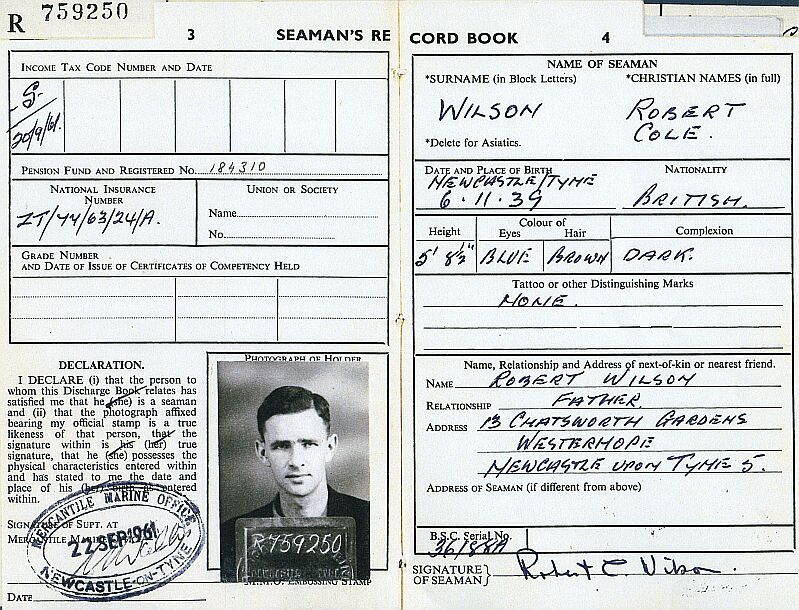 R 759250
3 SEAMAN'S RE
INCOME TAX CODE NUMBER AND DATE
S
20/9/61.
PENSION FUND AND REGISTERED No. 184310
NATIONAL INSURANCE
NUMBER
ZT/44/63/24/A.
UNION OR SOCIETY
Name
No.
GRADE NUMBER
AND DATE OF ISSUE OF CERTIFICATES OF COMPETENCY HELD
DECLARATION.
I DECLARE (i) that the person to
whom this Discharge Book relates has
satisfied me that he (she) is a seaman
and (ii) that the photograph affixed
bearing my official stamp is a true
likeness of that person, that the
signature within is his (her) true
signature, that he (she) possesses the
physical characteristics entered within
and has stated to me the date and
place of his (her) birth as entered
within.
SIGNATURE OF SUPT. AT
MERCANTILE MARINE
MERCANTILE MARINE OFFICE
22 SEP 1961
NEWCASTLE-ON-TYNE
DATE
PHOTOGRAPH OF HOLDER
R759250
M.M.O. EMBOSSING STAMP
CORD BOOK 4
NAME OF SEAMAN
*SURNAME (in Block Letters) *CHRISTIAN NAMES (in full)
WILSON ROBERT
COLE.
*Delete for Asiatics.
DATE AND PLACE OF BIRTH NATIONALITY
NEWCASTLE/TYNE
6.11.39 BRITISH.
Height Colour of Eyes Hair Complexion
5' 8½" BLUE BROWN DARK.
Tattoo or other Distinguishing Marks
NONE.
Name, Relationship and Address of next-of-kin or nearest friend.
NAME ROBERT WILSON
RELATIONSHIP FATHER.
ADDRESS 13 CHATSWORTH GARDENS
WESTERHOPE
NEWCASTLE UPON TYNE 5.
ADDRESS OF SEAMAN (if different from above)
B.S.C. Serial No.
36/88A
SIGNATURE OF SEAMAN } Robert C. Wilson.